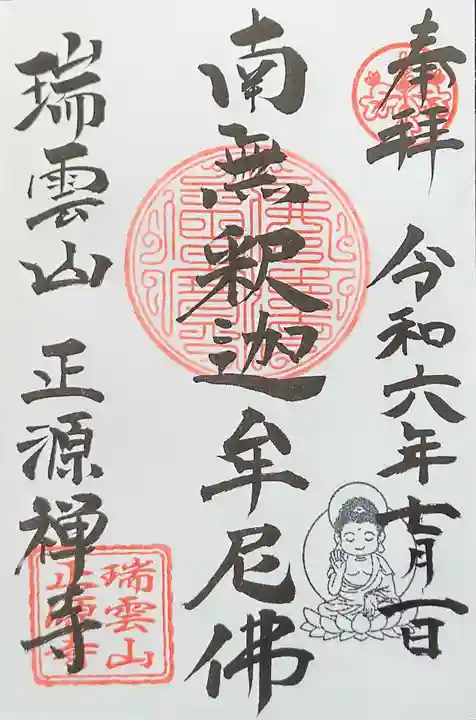 奉拝 令和六年七月一日
南無釈迦牟尼佛
瑞雲山 正源禅寺
瑞雲山
正源寺